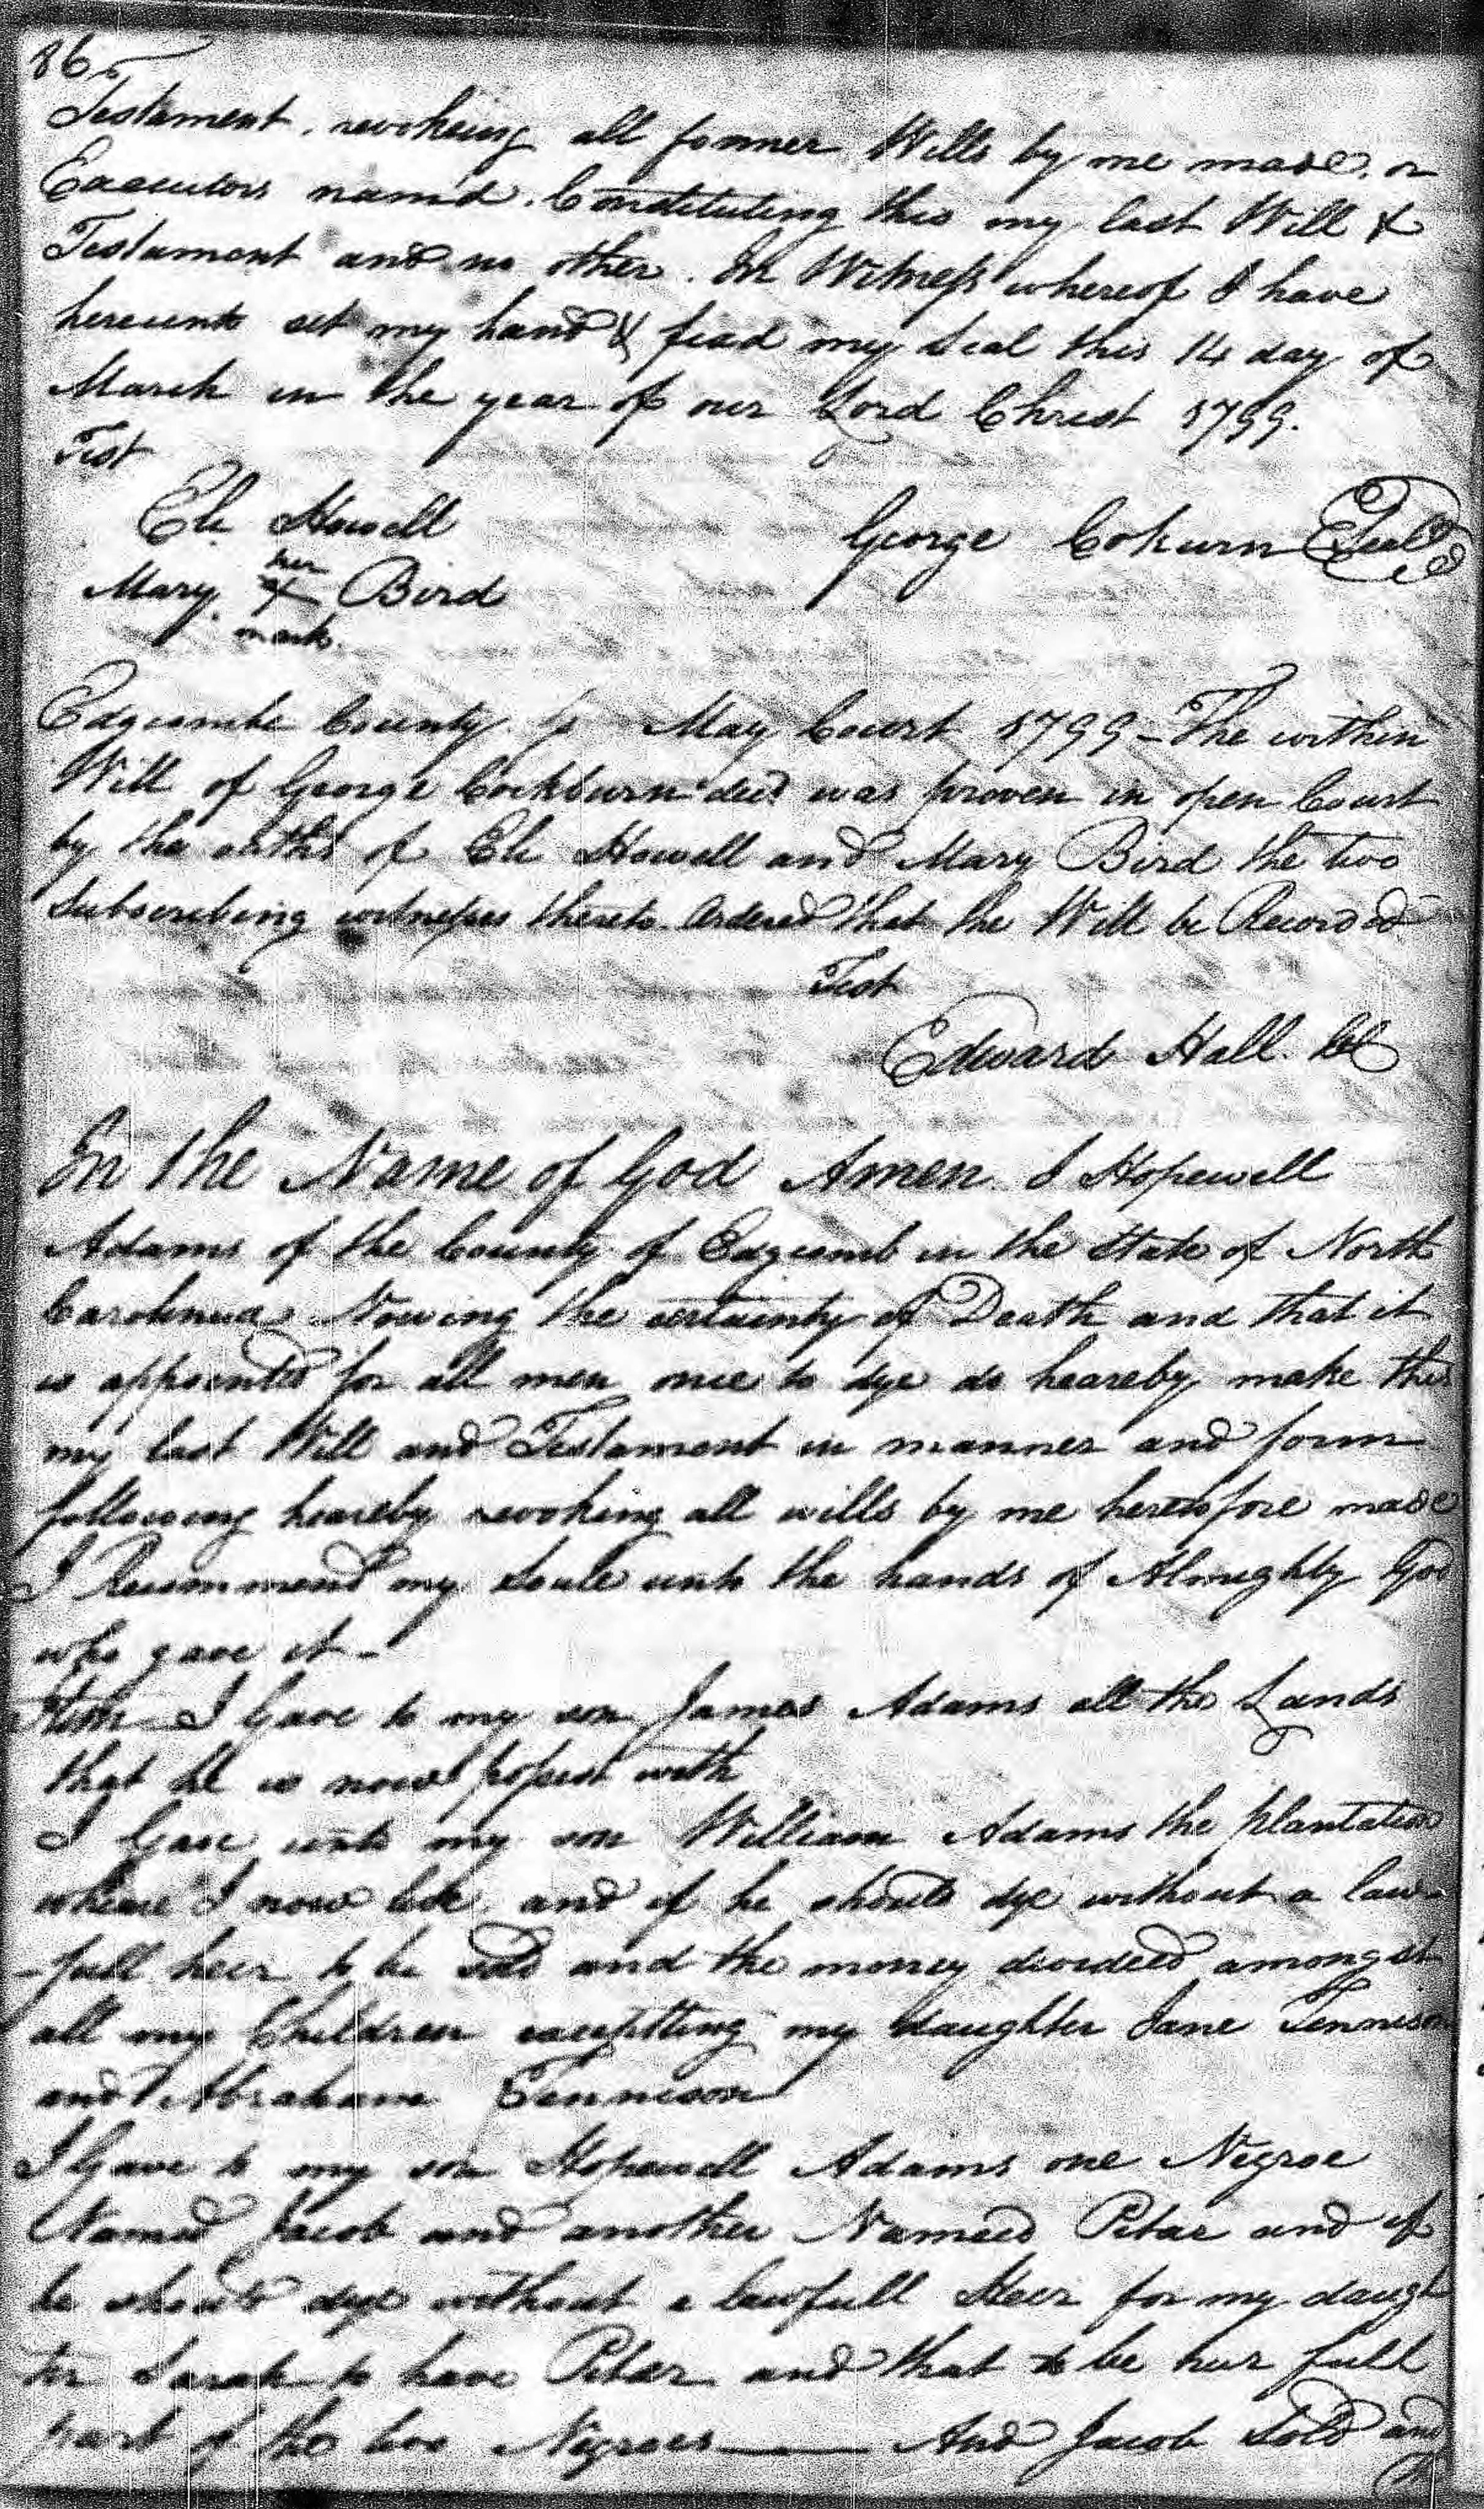 86
Testament. revokeing all former Wills by me made. or
Executors nam'd. Constituting this my last Will &
Testament and no other. In Witness whereof I have
hereunto set my hand & fixd my Seal this 14 day of
March in the year of our Lord Christ 1799.
Test
Eli Howell
George Cokurn Seal
her
Mary X Bird
mark.
Edgcombe County. May Court 1799 - The within
Will of George Cockburn decd was proven in open Court
by the oaths of Eli Howell and Mary Bird the two
Subscribing witnesses thereto. Ordered that the Will be Recorded
Test
Edward Hall. CC
In the Name of God Amen. I Hopewell
Adams of the County of Edgcomb in the State of North
Carolinua Nowing the certainty of Death and that it
is appointed for all men once to dye do heareby make this
my last Will and Testament in manner and form
following heareby revoking all wills by me heretofore made
I Recommend my Soule unto the hands of Almughty God
who gave it -
Item I Gave to my son James Adams all the Lands
that he is now possest with
I Gave unto my son William Adams the plantation
wheare I now live and if he should dye without a law-
-full heir to be sold and the money divided amongst
all my Children excepttting my daughter Jane Tennison
and Abraham Tennison
I Gave to my son Hopewell Adams one Negroe
Named Jacob and another Nameed Petar and if
he should dye without a lawfull Heir for my daugh
ter Sarah to have Petar and that to be hur full
part of the two Negroes And Jacob Sold and